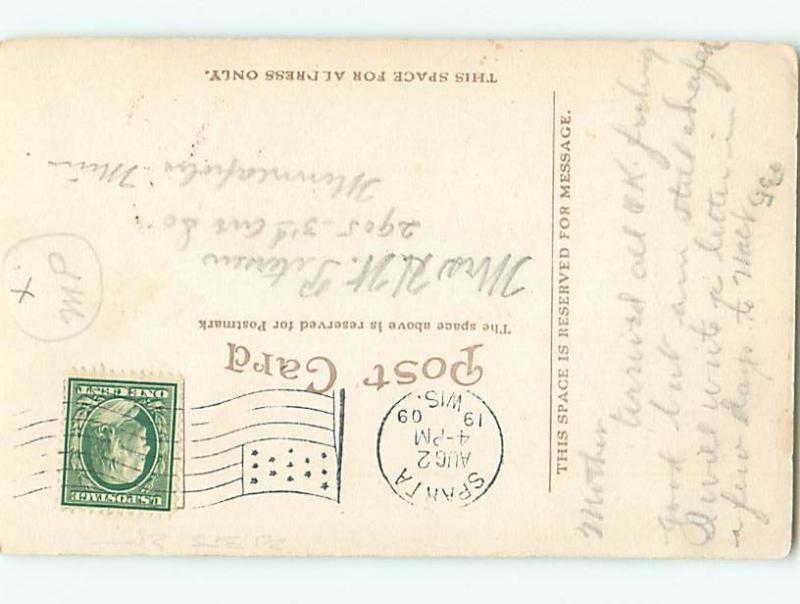 THIS SPACE IS RESERVED FOR MESSAGE.
Mother
Arrived all OK feeling
good but am still
I will write a letter in
a few days to Walt
Geo
SPARTA
AUG 2
4-PM
1909
WIS.
U.S. POSTAGE
ONE CENT
Post Card
The space above is reserved for Postmark
Mrs H.W. Peterson
2905-3rd Ave So
Minneapolis Minn
THIS SPACE FOR ADDRESS ONLY.